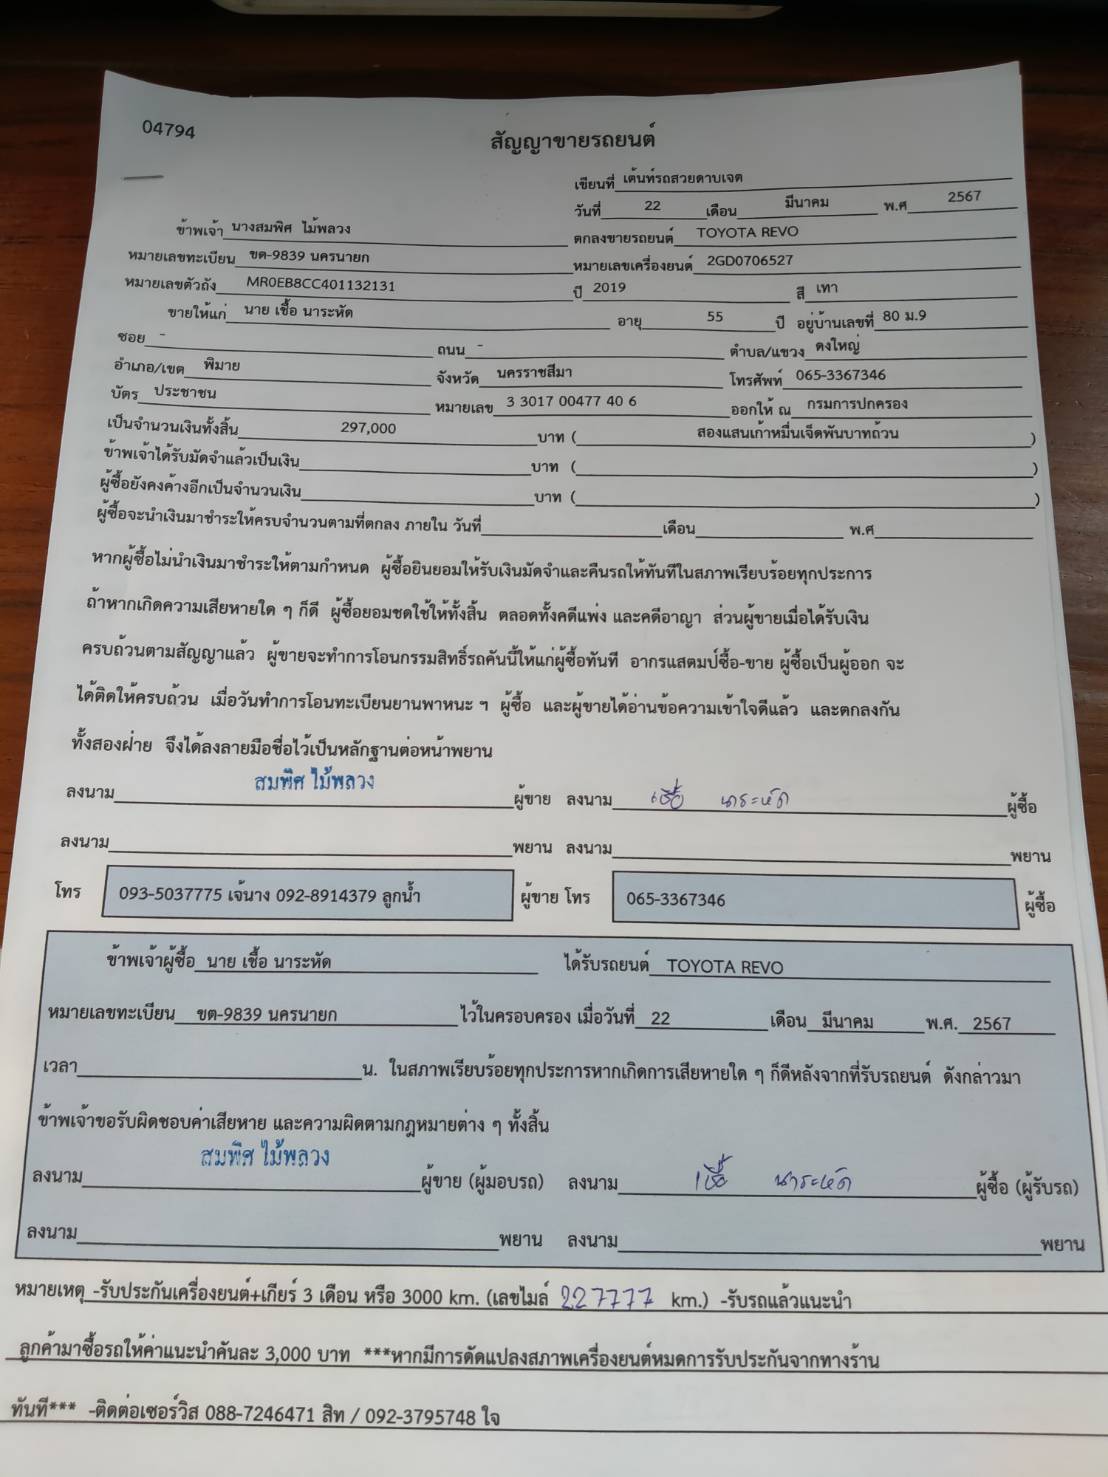 04794
สัญญาขายรถยนต์
เขียนที่ เต้นท์รถสวยดาบเจต
วันที่ 22 เดือน มีนาคม พ.ศ 2567
ข้าพเจ้า นางสมพิศ ไม้พลวง ตกลงขายรถยนต์ TOYOTA REVO
หมายเลขทะเบียน ขต-9839 นครนายก หมายเลขเครื่องยนต์ 2GD0706527
หมายเลขตัวถัง MR0EB8CC401132131 ปี 2019 สี เทา
ขายให้แก่ นาย เชื้อ นาระหัด อายุ 55 ปี อยู่บ้านเลขที่ 80 ม.9
ซอย - ถนน - ตำบล/แขวง ดงใหญ่
อำเภอ/เขต พิมาย จังหวัด นครราชสีมา โทรศัพท์ 065-3367346
บัตร ประชาชน หมายเลข 3 3017 00477 40 6 ออกให้ ณ กรมการปกครอง
เป็นจำนวนเงินทั้งสิ้น 297,000 บาท ( สองแสนเก้าหมื่นเจ็ดพันบาทถ้วน )
ข้าพเจ้าได้รับมัดจำแล้วเป็นเงิน บาท ( )
ผู้ซื้อยังคงค้างอีกเป็นจำนวนเงิน บาท ( )
ผู้ซื้อจะนำเงินมาชำระให้ครบจำนวนตามที่ตกลง ภายใน วันที่ เดือน พ.ศ
หากผู้ซื้อไม่นำเงินมาชำระให้ตามกำหนด ผู้ซื้อยินยอมให้รับเงินมัดจำและคืนรถให้ทันทีในสภาพเรียบร้อยทุกประการ
ถ้าหากเกิดความเสียหายใด ๆ ก็ดี ผู้ซื้อยอมชดใช้ให้ทั้งสิ้น ตลอดทั้งคดีแพ่ง และคดีอาญา ส่วนผู้ขายเมื่อได้รับเงิน
ครบถ้วนตามสัญญาแล้ว ผู้ขายจะทำการโอนกรรมสิทธิ์รถคันนี้ให้แก่ผู้ซื้อทันที อากรแสตมป์ซื้อ-ขาย ผู้ซื้อเป็นผู้ออก จะ
ได้ติดให้ครบถ้วน เมื่อวันทำการโอนทะเบียนยานพาหนะ ฯ ผู้ซื้อ และผู้ขายได้อ่านข้อความเข้าใจดีแล้ว และตกลงกัน
ทั้งสองฝ่าย จึงได้ลงลายมือชื่อไว้เป็นหลักฐานต่อหน้าพยาน
ลงนาม สมพิศ ไม้พลวง ผู้ขาย ลงนาม เชื้อ นาระหัด ผู้ซื้อ
ลงนาม พยาน ลงนาม พยาน
โทร 093-5037775 เจ้นาง 092-8914379 ลูกน้ำ ผู้ขาย โทร 065-3367346 ผู้ซื้อ
ข้าพเจ้าผู้ซื้อ นาย เชื้อ นาระหัด ได้รับรถยนต์ TOYOTA REVO
หมายเลขทะเบียน ขต-9839 นครนายก ไว้ในครอบครอง เมื่อวันที่ 22 เดือน มีนาคม พ.ศ. 2567
เวลา น. ในสภาพเรียบร้อยทุกประการหากเกิดการเสียหายใด ๆ ก็ดีหลังจากที่รับรถยนต์ ดังกล่าวมา
ข้าพเจ้าขอรับผิดชอบค่าเสียหาย และความผิดตามกฎหมายต่าง ๆ ทั้งสิ้น
ลงนาม สมพิศ ไม้พลวง ผู้ขาย (ผู้มอบรถ) ลงนาม เชื้อ นาระหัด ผู้ซื้อ (ผู้รับรถ)
ลงนาม พยาน ลงนาม พยาน
หมายเหตุ -รับประกันเครื่องยนต์+เกียร์ 3 เดือน หรือ 3000 km. (เลขไมล์ 227777 km.) -รับรถแล้วแนะนำ
ลูกค้ามาซื้อรถให้ค่าแนะนำคันละ 3,000 บาท ***หากมีการดัดแปลงสภาพเครื่องยนต์หมดการรับประกันจากทางร้าน
ทันที*** -ติดต่อเซอร์วิส 088-7246471 สิท / 092-3795748 ใจ